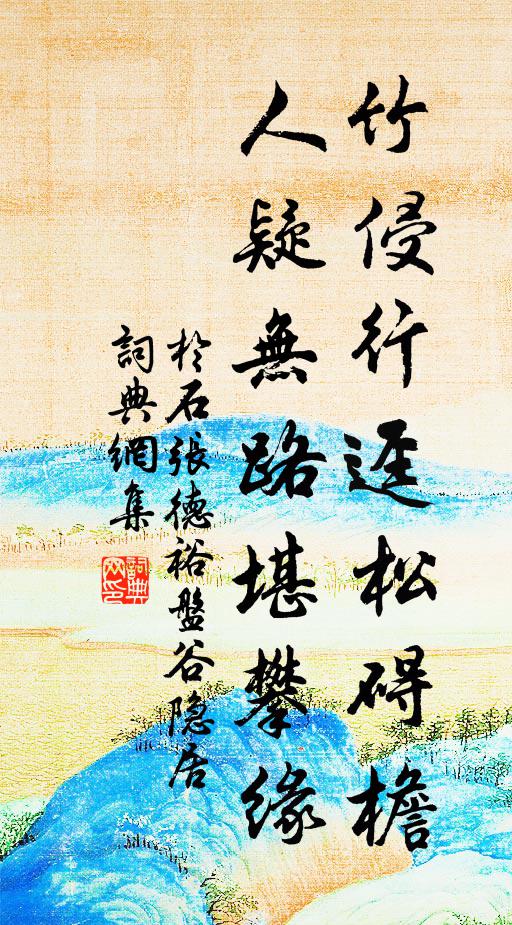 竹侵行逕松碍檐
人疑無路堪攀緣
於石張德裕盤谷隐居
詞典網集
詞典網印